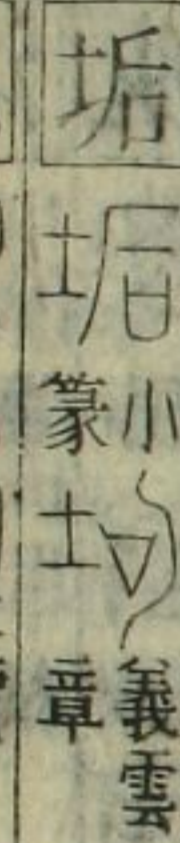 垢
垢
小篆
坸
義雲章